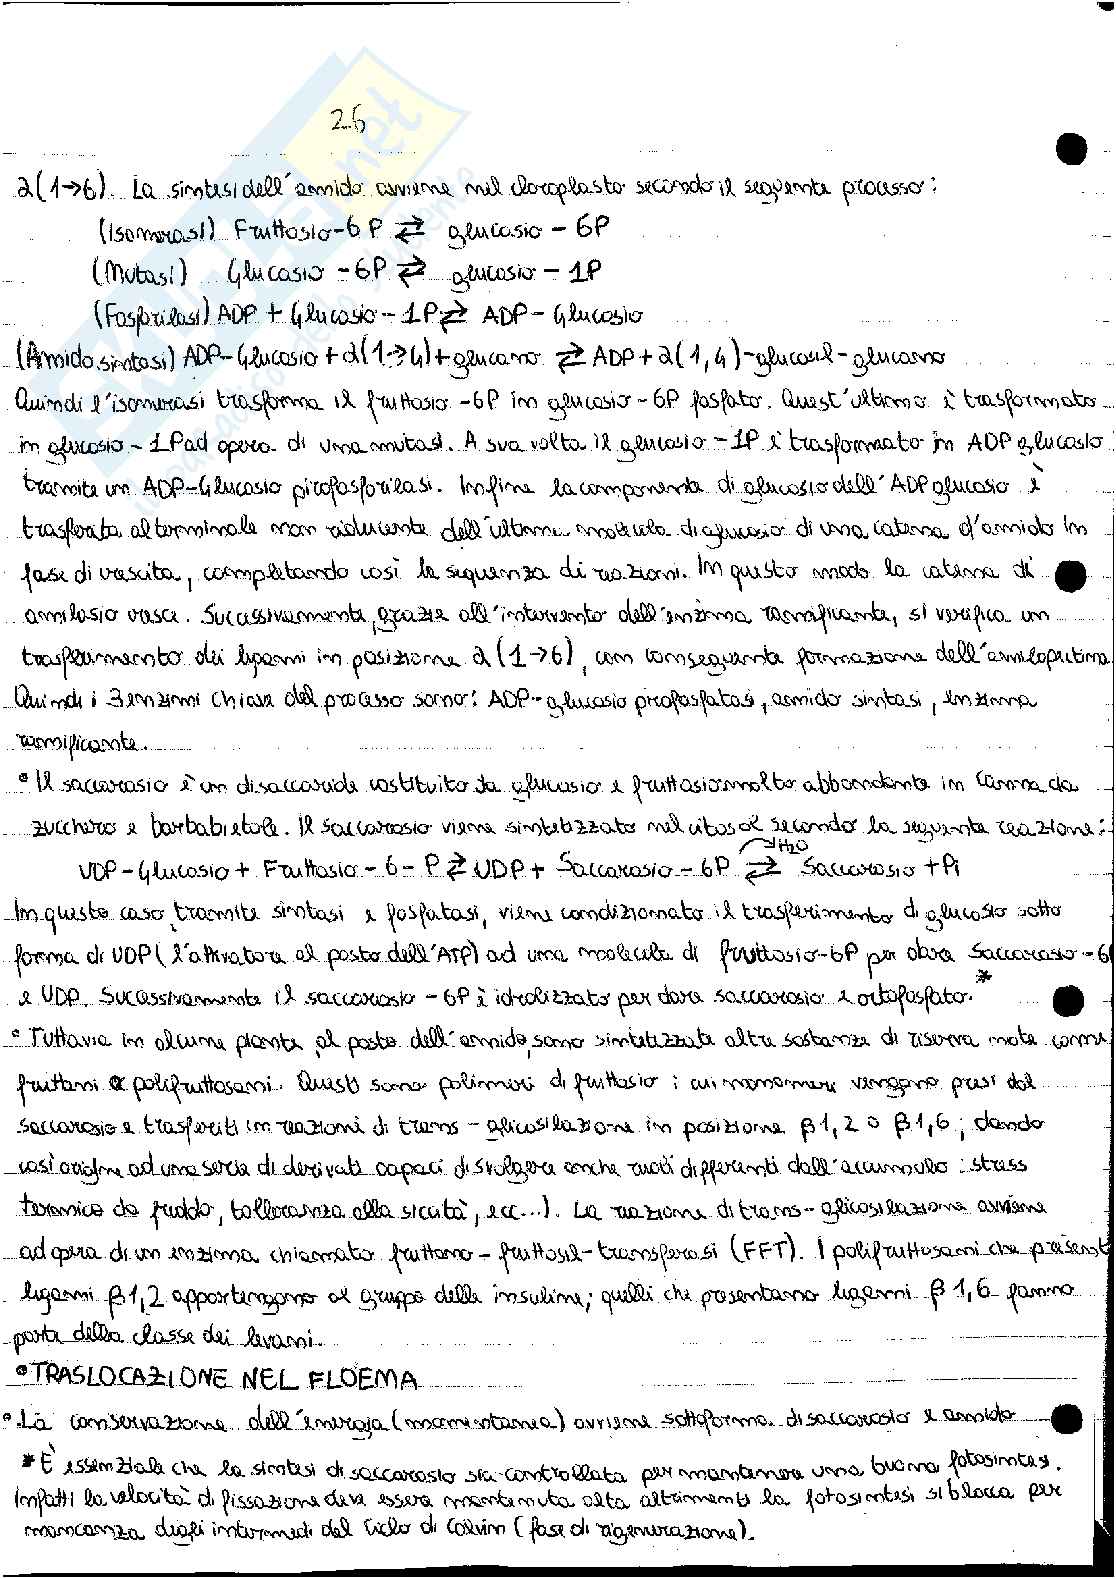 26
α(1→6). La sintesi dell'amido avviene nel cloroplasto secondo il seguente processo:
(Isomerasi) Fruttosio-6P ⇄ glucosio-6P
(Mutasi) Glucosio-6P ⇄ glucosio-1P
(Fosforilasi) ADP + Glucosio-1P ⇄ ADP-Glucosio
(Amido sintasi) ADP-Glucosio + α(1→4)+glucano ⇄ ADP + α(1,4)-glucosil-glucano
Quindi l'isomerasi trasforma il fruttosio-6P in glucosio-6P fosfato. Quest'ultimo è trasformato
in glucosio-1P ad opera di una mutasi. A sua volta il glucosio-1P è trasformato in ADP glucosio
tramite un ADP-Glucosio pirofosforilasi. Infine la componente di glucosio dell'ADP glucosio è
trasferita al terminale non riducente dell'ultima molecola di glucosio di una catena d'amido in
fase di crescita, completando così la sequenza di reazioni. In questo modo la catena di
amilosio cresce. Successivamente, grazie all'intervento dell'enzima ramificante, si verifica un
trasferimento dei legami in posizione α(1→6), con conseguente formazione dell'amilopectina
Quindi i 3 enzimi chiave del processo sono: ADP-glucosio pirofosfatasi, amido sintasi, enzima
ramificante.
• Il saccarosio è un disaccaride costituito da glucosio e fruttosio molto abbondante in canna da
zucchero e barbabietole. Il saccarosio viene sintetizzato nel citosol secondo la seguente reazione:
H2O
UDP-Glucosio + Fruttosio-6-P ⇄ UDP + Saccarosio-6P ⇄ Saccarosio + Pi
In questo caso tramite sintasi e fosfatasi, viene condizionato il trasferimento di glucosio sotto
forma di UDP (l'attivatore al posto dell'ATP) ad una molecola di fruttosio-6P per dare Saccarosio-6P
e UDP. Sucessivamente il saccarosio-6P è idrolizzato per dare saccarosio e ortofosfato.*
• Tuttavia in alcune piante, al posto dell'amido, sono sintetizzate altre sostanze di riserva note come
fruttani o polifruttosani. Questi sono polimeri di fruttosio i cui monomeri vengono presi dal
saccarosio e trasferiti in reazioni di trans-glicosilazione in posizione β1,2 o β1,6, dando
così origine ad una serie di derivati capaci di svolgere anche ruoli differenti dall'accumulo: stress
termico da freddo, tolleranza alla siccità, ecc...). La reazione di trans-glicosilazione avviene
ad opera di un enzima chiamato fruttano-fruttosil-transferasi (FFT). I polifruttosani che presentano
legami β1,2 appartengono al gruppo delle insuline; quelli che presentano legami β1,6 fanno
parte della classe dei levani.
• TRASLOCAZIONE NEL FLOEMA
• La conservazione dell'energia (momentanea) avviene sottoforma di saccarosio e amido
* È essenziale che la sintesi di saccarosio sia controllata per mantenere una buona fotosintesi.
Infatti la velocità di fissazione deve essere mantenuta alta altrimenti la fotosintesi si blocca per
mancanza degli intermedi del Ciclo di Calvin (fase di rigenerazione).